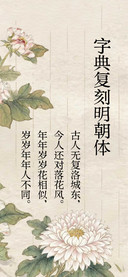 字典复刻明朝体
古人无复洛城东，
今人还对落花风。
年年岁岁花相似，
岁岁年年人不同。